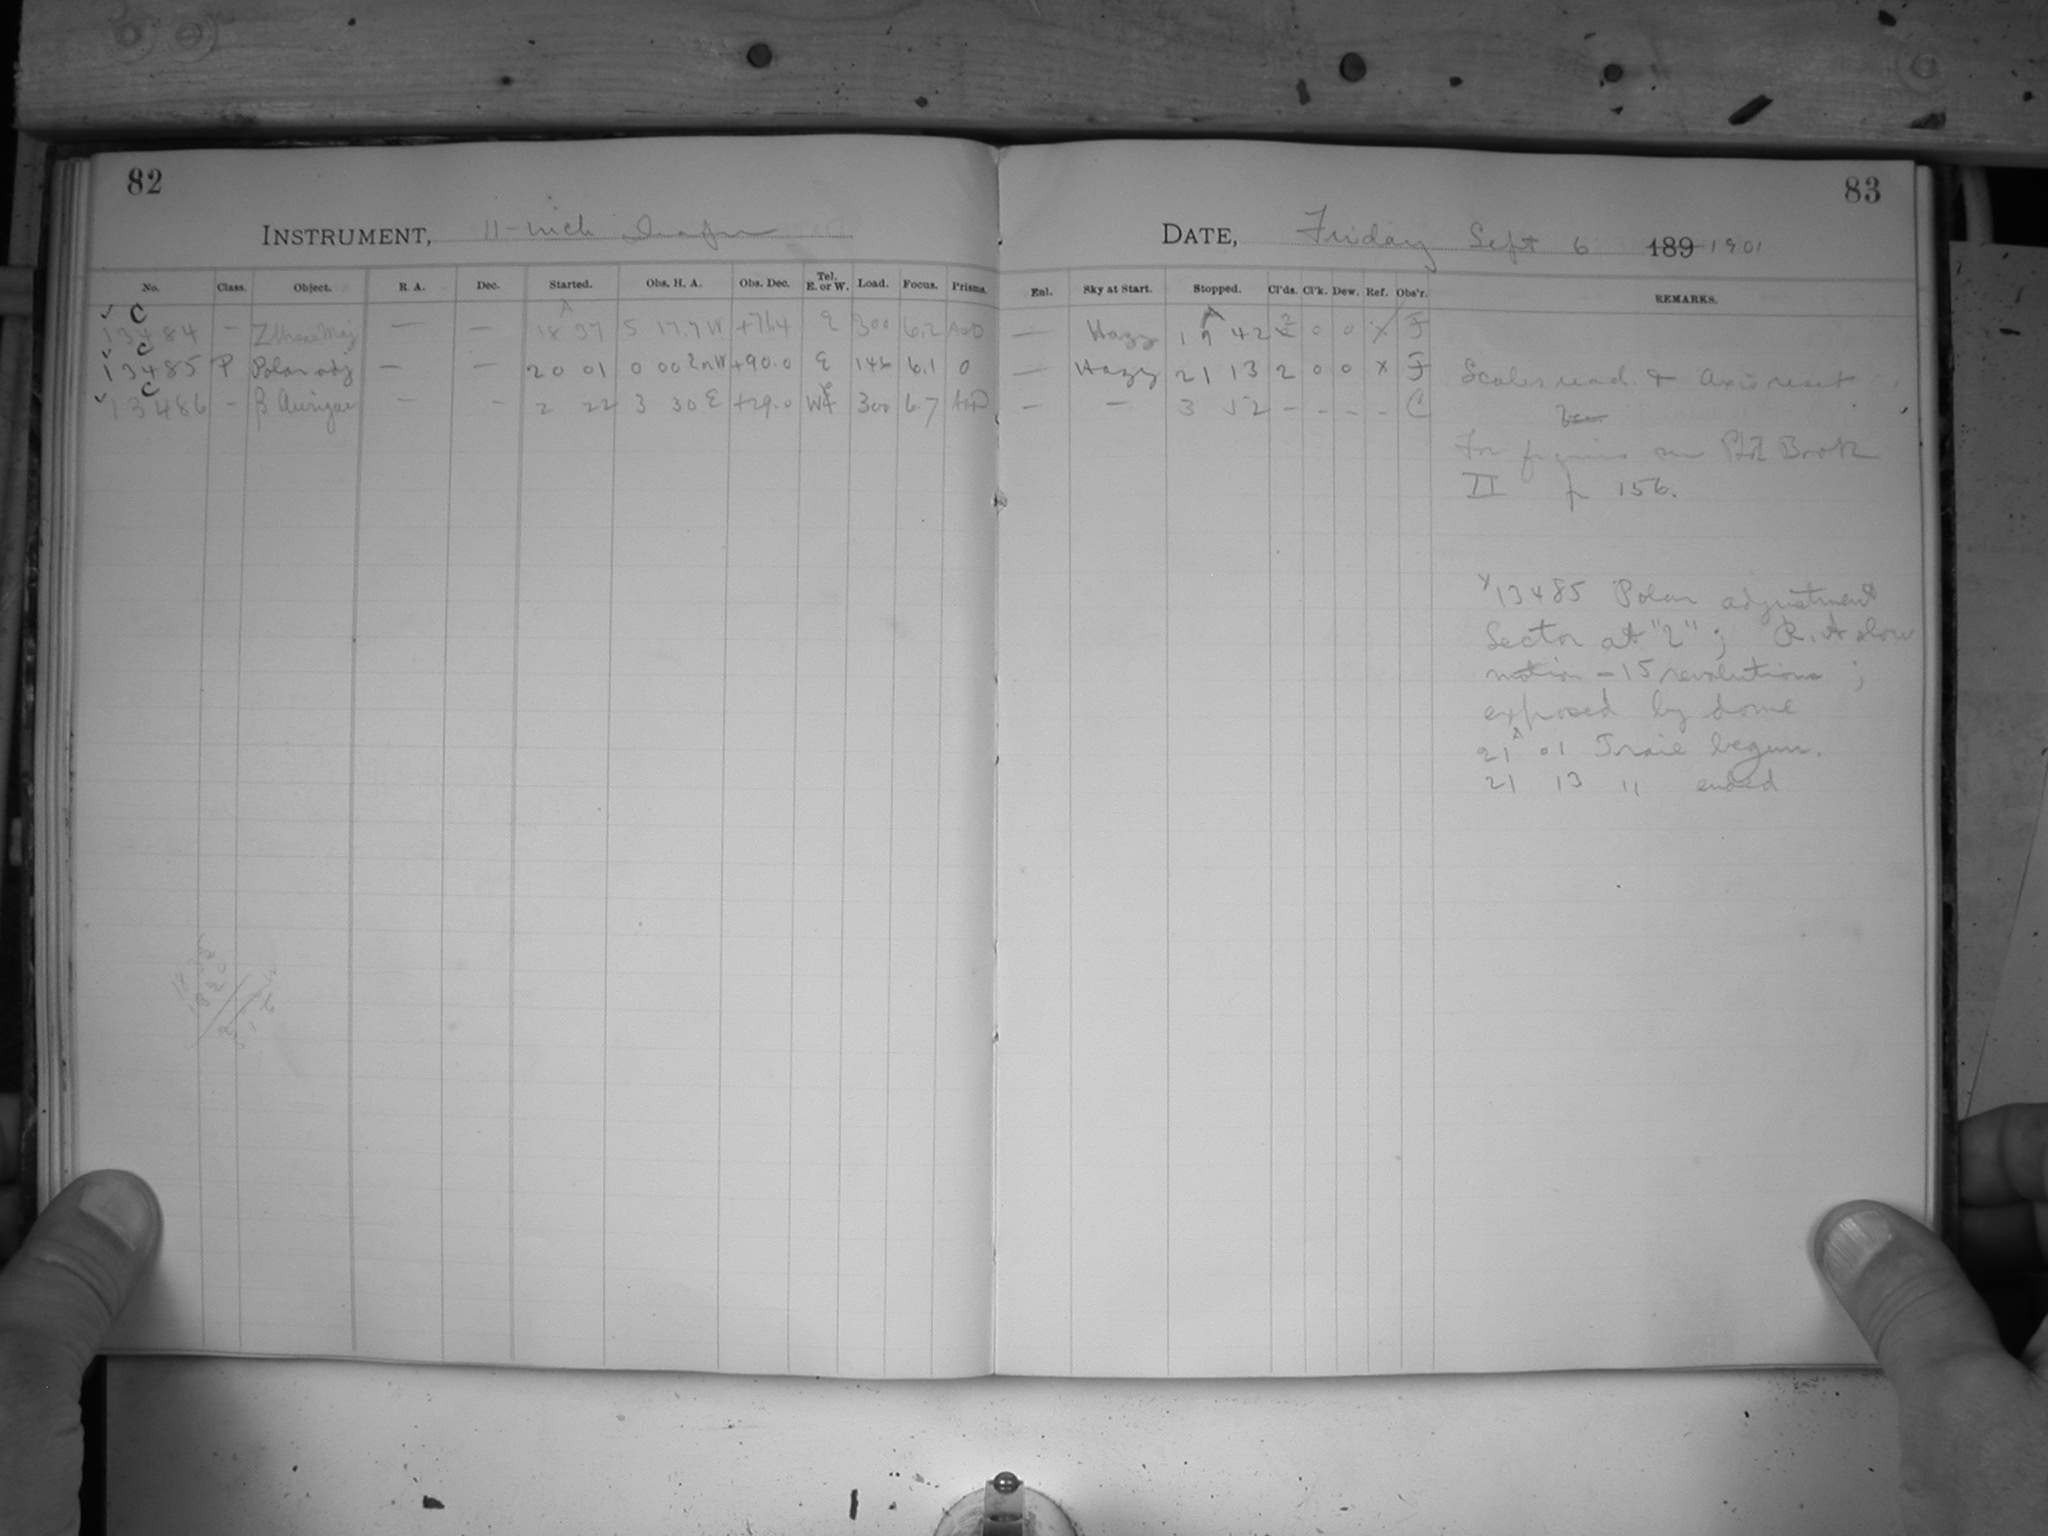 82
83
INSTRUMENT, 11-inch Draper
DATE, Friday Sept 6 189 1901
No. Class. Object. R. A. Dec. Started. Obs. H. A. Obs. Dec. Tel. E. or W. Load. Focus. Prisms. Enl. Sky at Start. Stopped. Cl'ds. Cl'k. Dew. Ref. Obs'r. REMARKS.
13484 — — — 18 37 5 17.7 W E 300 6.2 — Hazy 19 42 2 0 0 x F
13485 P Polar adj — — 20 01 0 00 +90.0 E 146 6.1 0 — Hazy 21 13 2 0 0 x F
13486 - β Aurigae — — 2 22 3 30 E +29.0 300 6.7 — — 3 52 - - - - C
Scales read. & Axis reset
For figures see Book
II p 156.
x13485 Polar adjustment
Sector at "2"; R.A slow
motion – 15 revolutions;
exposed by dome
21 01 Trail begun.
21 13 " ended